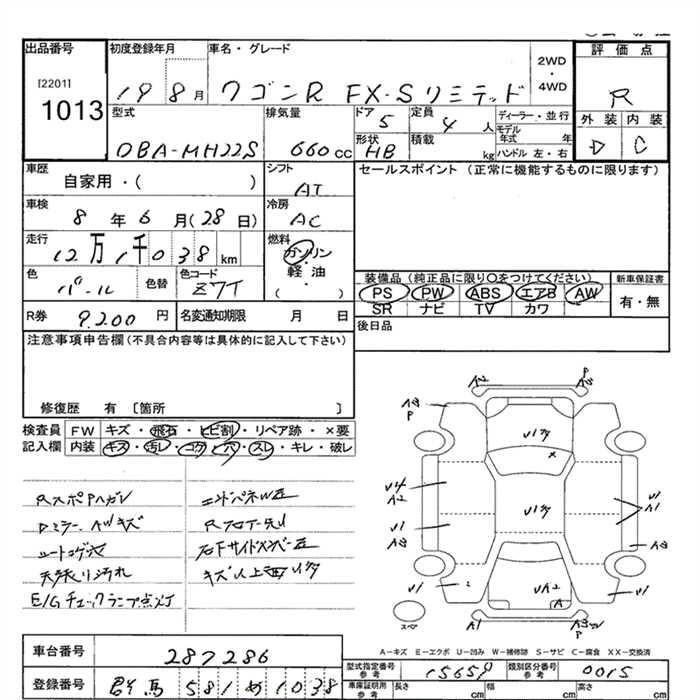 出品番号 初度登録年月 車名・グレード 評価点
[2201]
1013
19 8月 ワゴンR FX-Sリミテッド 2WD・4WD R
型式 排気量 ドア 5 定員 4人 ディーラー・並行 外装 内装
DBA-MH22S 660cc 形状 HB 積載 kg モデル年式 年 ハンドル 左・右 D C
車歴 シフト セールスポイント（正常に機能するものに限ります）
自家用・( ) AT
車検 冷房
8年6月(28日) AC
走行 燃料
12万1千038km ガソリン・軽油・( )
色 パール 色替 色コード Z7T
装備品（純正品に限り○をつけてください） 新車保証書
PS PW ABS エアB AW 有・無
SR ナビ TV カワ
R券 9,200円 名変通知期限 月 日 後日品
注意事項申告欄（不具合内容等は具体的に記入して下さい）
修復歴 有〔箇所 〕
検査員記入欄 FW キズ・飛石・ヒビ割・リペア跡・×要
内装 キズ・汚レ・コゲ・穴・スレ・キレ・破レ
Rスポ
ミラー、AWキズ
シートコゲ穴
天張り汚れ
E/Gチェックランプ点灯
Rフロアー
右下サイドメンバー
キズ
A2 P A3
A3 P
U1
U4
A2
U1
A3
U1
U1
U1
A1
A3
U1
UA2
A
A1 P
スペア
A－キズ E－エクボ U－凹み W－補修跡 S－サビ C－腐食 XX－交換済
車台番号 287286
型式指定番号 参考 15659 類別区分番号 参考 0015
登録番号 群馬 581 め 1038
車庫証明用 参考 長さ cm 幅 cm 高さ cm